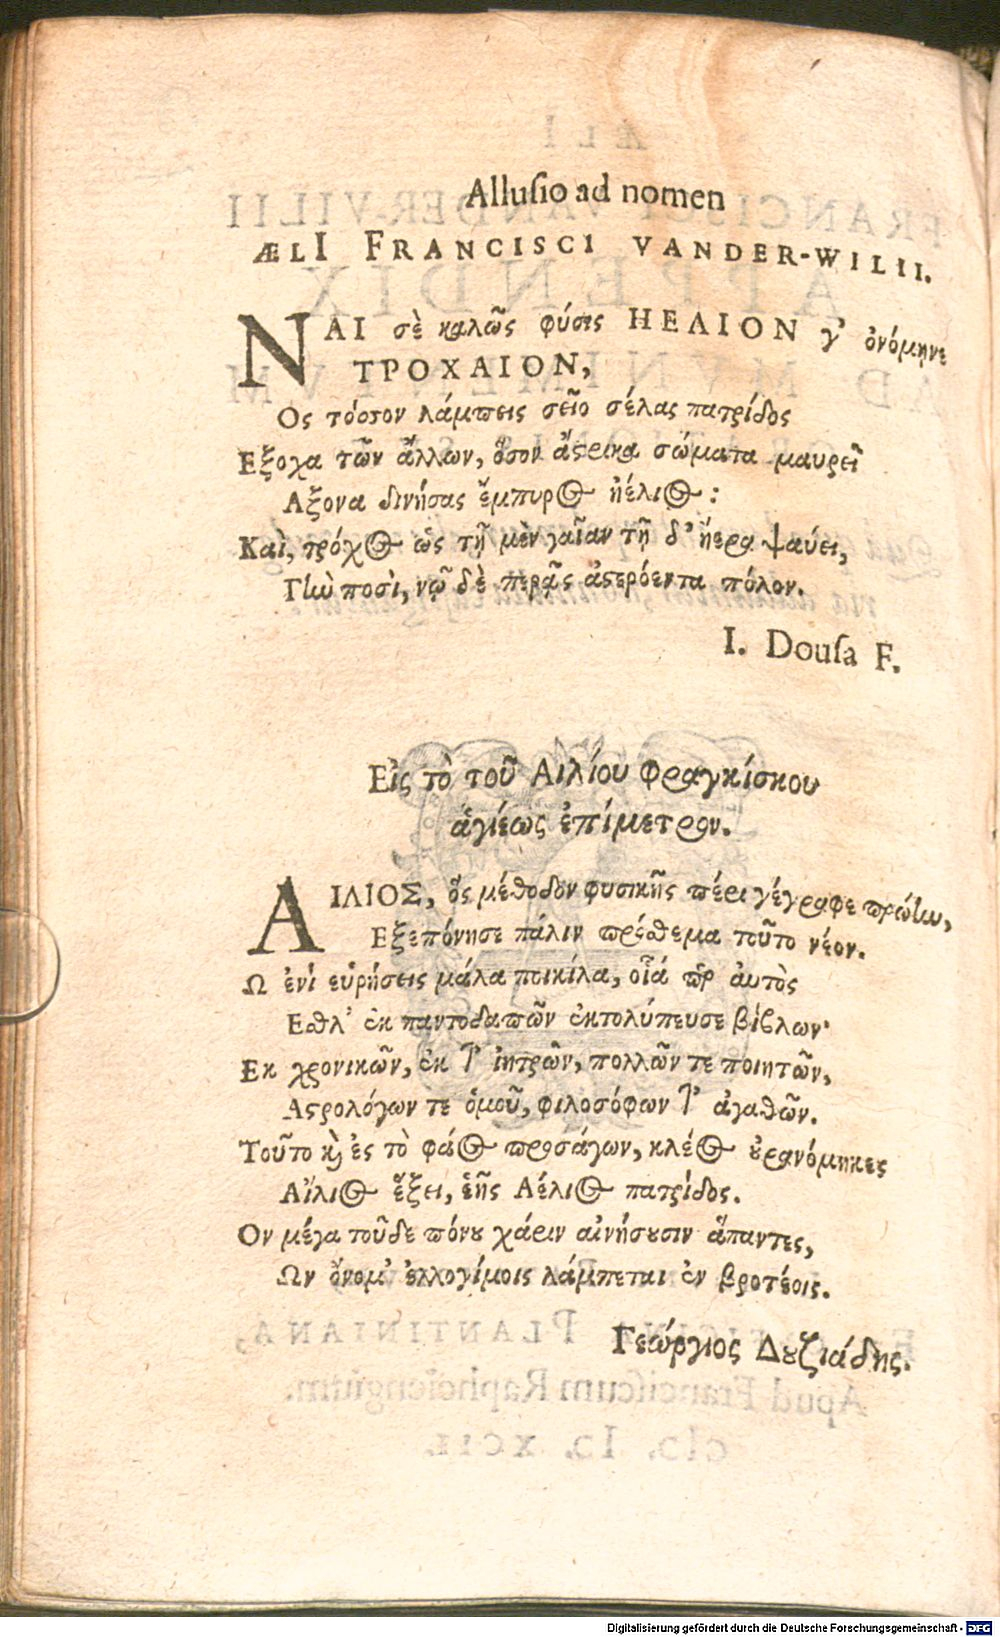 Alluſio ad nomen
ÆLI FRANCISCI VANDER-WILII.
ΝΑΙ σὲ καλῶς φύσις ΗΕΛΙΟΝ γ' ὀνόμηνε
ΤΡΟΧΑΙΟΝ,
Ος τόσσον λάμπεις σεῖο σέλας πατρίδος
Εξοχα τῶν ἄλλων, ὅσον ἄστρικα σώματα μαυρεῖ
Αξονα δινήσας ἔμπυρος ἠέλιος:
Καὶ, τρόχος ὡς τῇ μὲν γαῖαν τῇ δ' ἠέρα ψαύει,
Γὴν ποσὶ, νῷ δὲ περᾷς ἀστερόεντα πόλον.
I. Douſa F.
Εἰς τὸ τοῦ Αιλίου Φραγκίσκου
ἀγιέως ἐπίμετρον.
ΑΙΛΙΟΣ, ὃς μέθοδον φυσικῆς πέρι γέγραφε πρώτην,
Εξεπόνησε πάλιν πρόσθεμα τοῦτο νέον.
Ω ἐνὶ εὑρήσεις μάλα ποικίλα, οἷά περ ἀυτὸς
Εσθλ' ἐκ παντοδαπῶν ἐκτολύπευσε βίβλων·
Εκ χρονικῶν, ἐκ τ' ἰητρῶν, πολλῶν τε ποιητῶν,
Αστρολόγων τε ὁμοῦ, φιλοσόφων τ' ἀγαθῶν.
Τοῦτο καὶ ἐς τὸ φάος προσάγων, κλέος οὐρανόμηκες
Αἴλιος ἕξει, ἑῆς Αέλιος πατρίδος.
Ον μέγα τοῦδε πόνου χάριν αἰνήσουσιν ἅπαντες,
Ων ὄνομ' ἐλλογίμοις λάμπεται ἐν βροτέοις.
Γεώργιος Δουζιάδης.
Digitalisierung gefördert durch die Deutsche Forschungsgemeinschaft - DFG